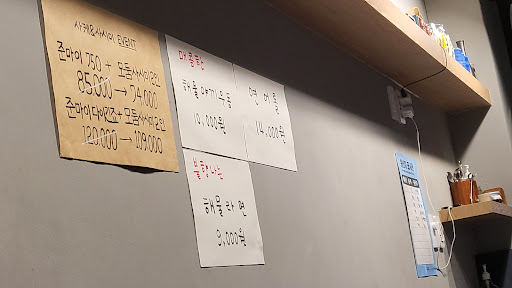 사케&사시미 EVENT
준마이 750 + 모듬사시미2인
85,000 → 74,000
준마이다이긴죠 + 모듬사시미2인
120,000 → 109,000
매콤한
해물야끼우동
10,000원
연어롤
14,000원
불향나는
해물라면
9,000원